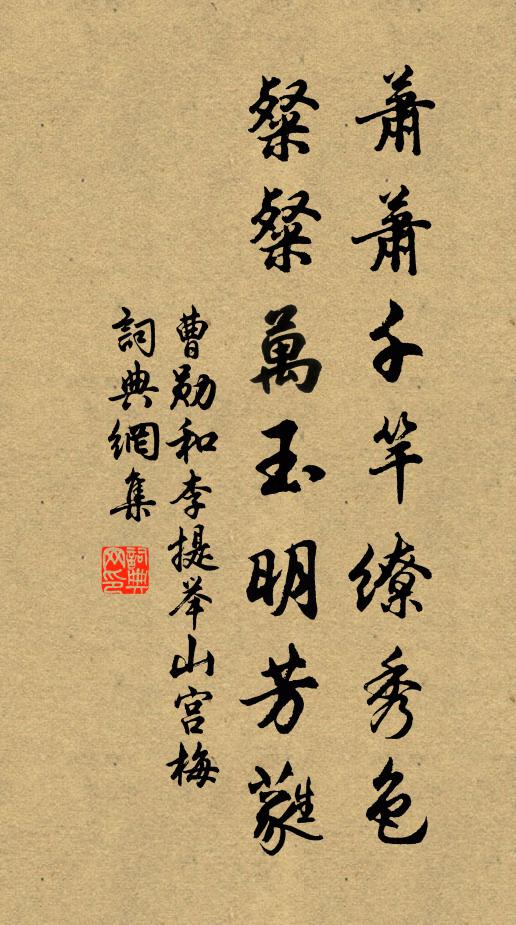 蕭蕭千竿繚秀色
粲粲萬玉明芳蕤
曹勛和李提举山宫梅
詞典網集
詞典網印